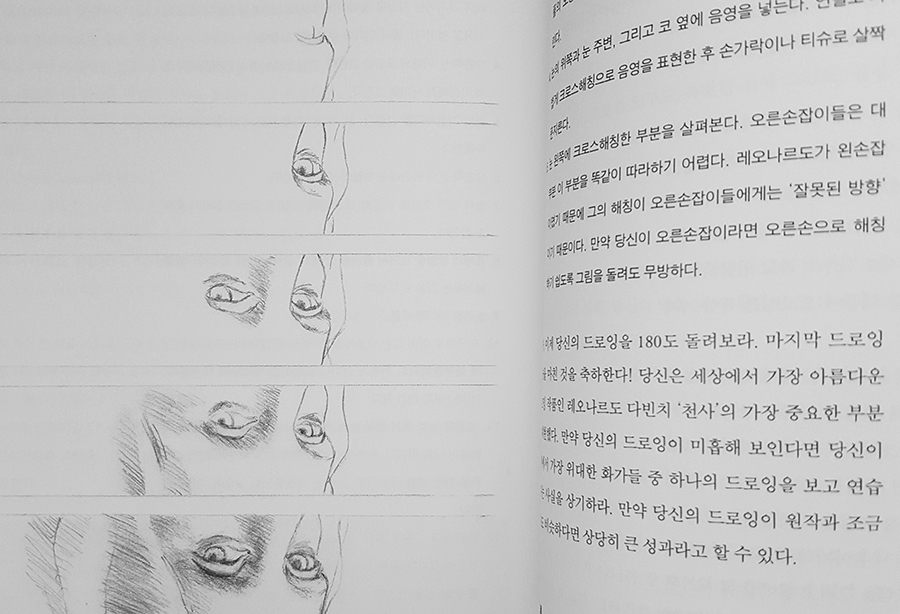 위쪽과 눈 주변, 그리고 코 옆에 음영을 넣는다.
크로스해칭으로 음영을 표현한 후 손가락이나 티슈로 살짝
문지른다.
눈 왼쪽에 크로스해칭한 부분을 살펴본다. 오른손잡이들은 대
부분 이 부분을 똑같이 따라하기 어렵다. 레오나르도가 왼손잡
이였기 때문에 그의 해칭이 오른손잡이들에게는 ‘잘못된 방향’
이기 때문이다. 만약 당신이 오른손잡이라면 오른손으로 해칭
하기 쉽도록 그림을 돌려도 무방하다.
당신의 드로잉을 180도 돌려보라. 마지막 드로잉
마친 것을 축하한다! 당신은 세상에서 가장 아름다운
작품인 레오나르도 다빈치 ‘천사’의 가장 중요한 부분
만약 당신의 드로잉이 미흡해 보인다면 당신이
가장 위대한 화가들 중 하나의 드로잉을 보고 연습
사실을 상기하라. 만약 당신의 드로잉이 원작과 조금
비슷하다면 상당히 큰 성과라고 할 수 있다.